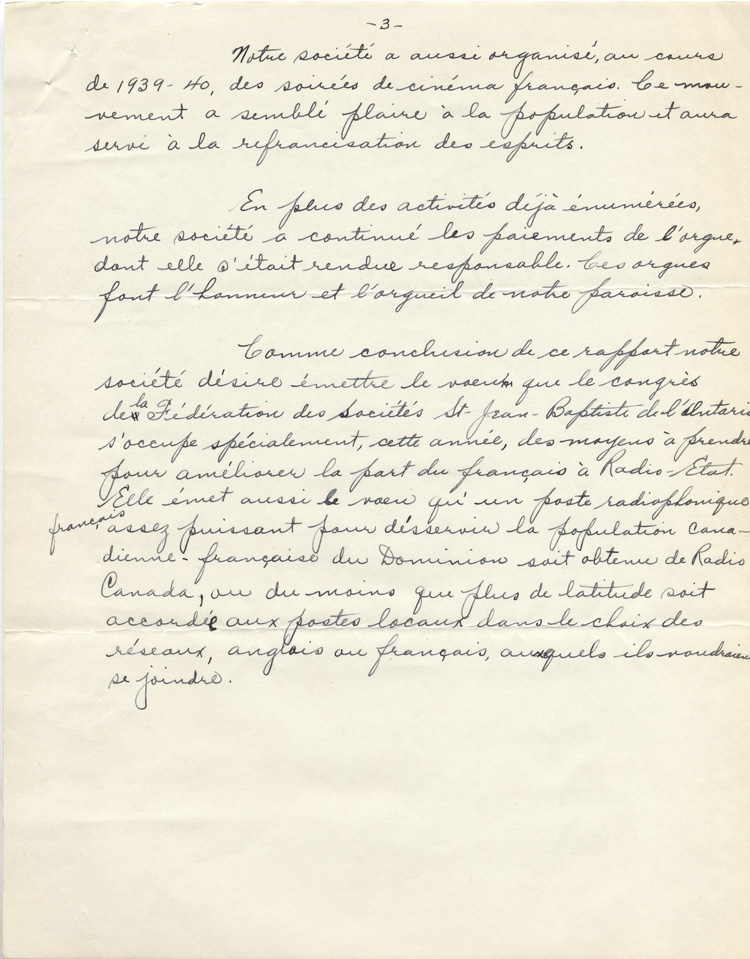 -3-
Notre société a aussi organisé, au cours
de 1939-40, des soirées de cinéma français. Ce mou-
vement a semblé plaire à la population et aura
servi à la refrancisation des esprits.
En plus des activités déjà énumérées,
notre société a continué les paiements de l'orgue,
dont elle s'était rendue responsable. Ces orgues
font l'honneur et l'orgueil de notre paroisse.
Comme conclusion de ce rapport notre
société désire émettre le voeu que le congrès
de la Fédération des Sociétés St-Jean-Baptiste de l'Ontario
s'occupe spécialement, cette année, des moyens à prendre
pour améliorer la part du français à Radio-Etat.
Elle émet aussi le voeu qu'un poste radiophonique
français assez puissant pour désservir la population cana-
dienne-française du Dominion soit obtenu de Radio
Canada, ou du moins que plus de latitude soit
accordée aux postes locaux dans le choix des
réseaux, anglais ou français, auxquels ils voudraient
se joindre.